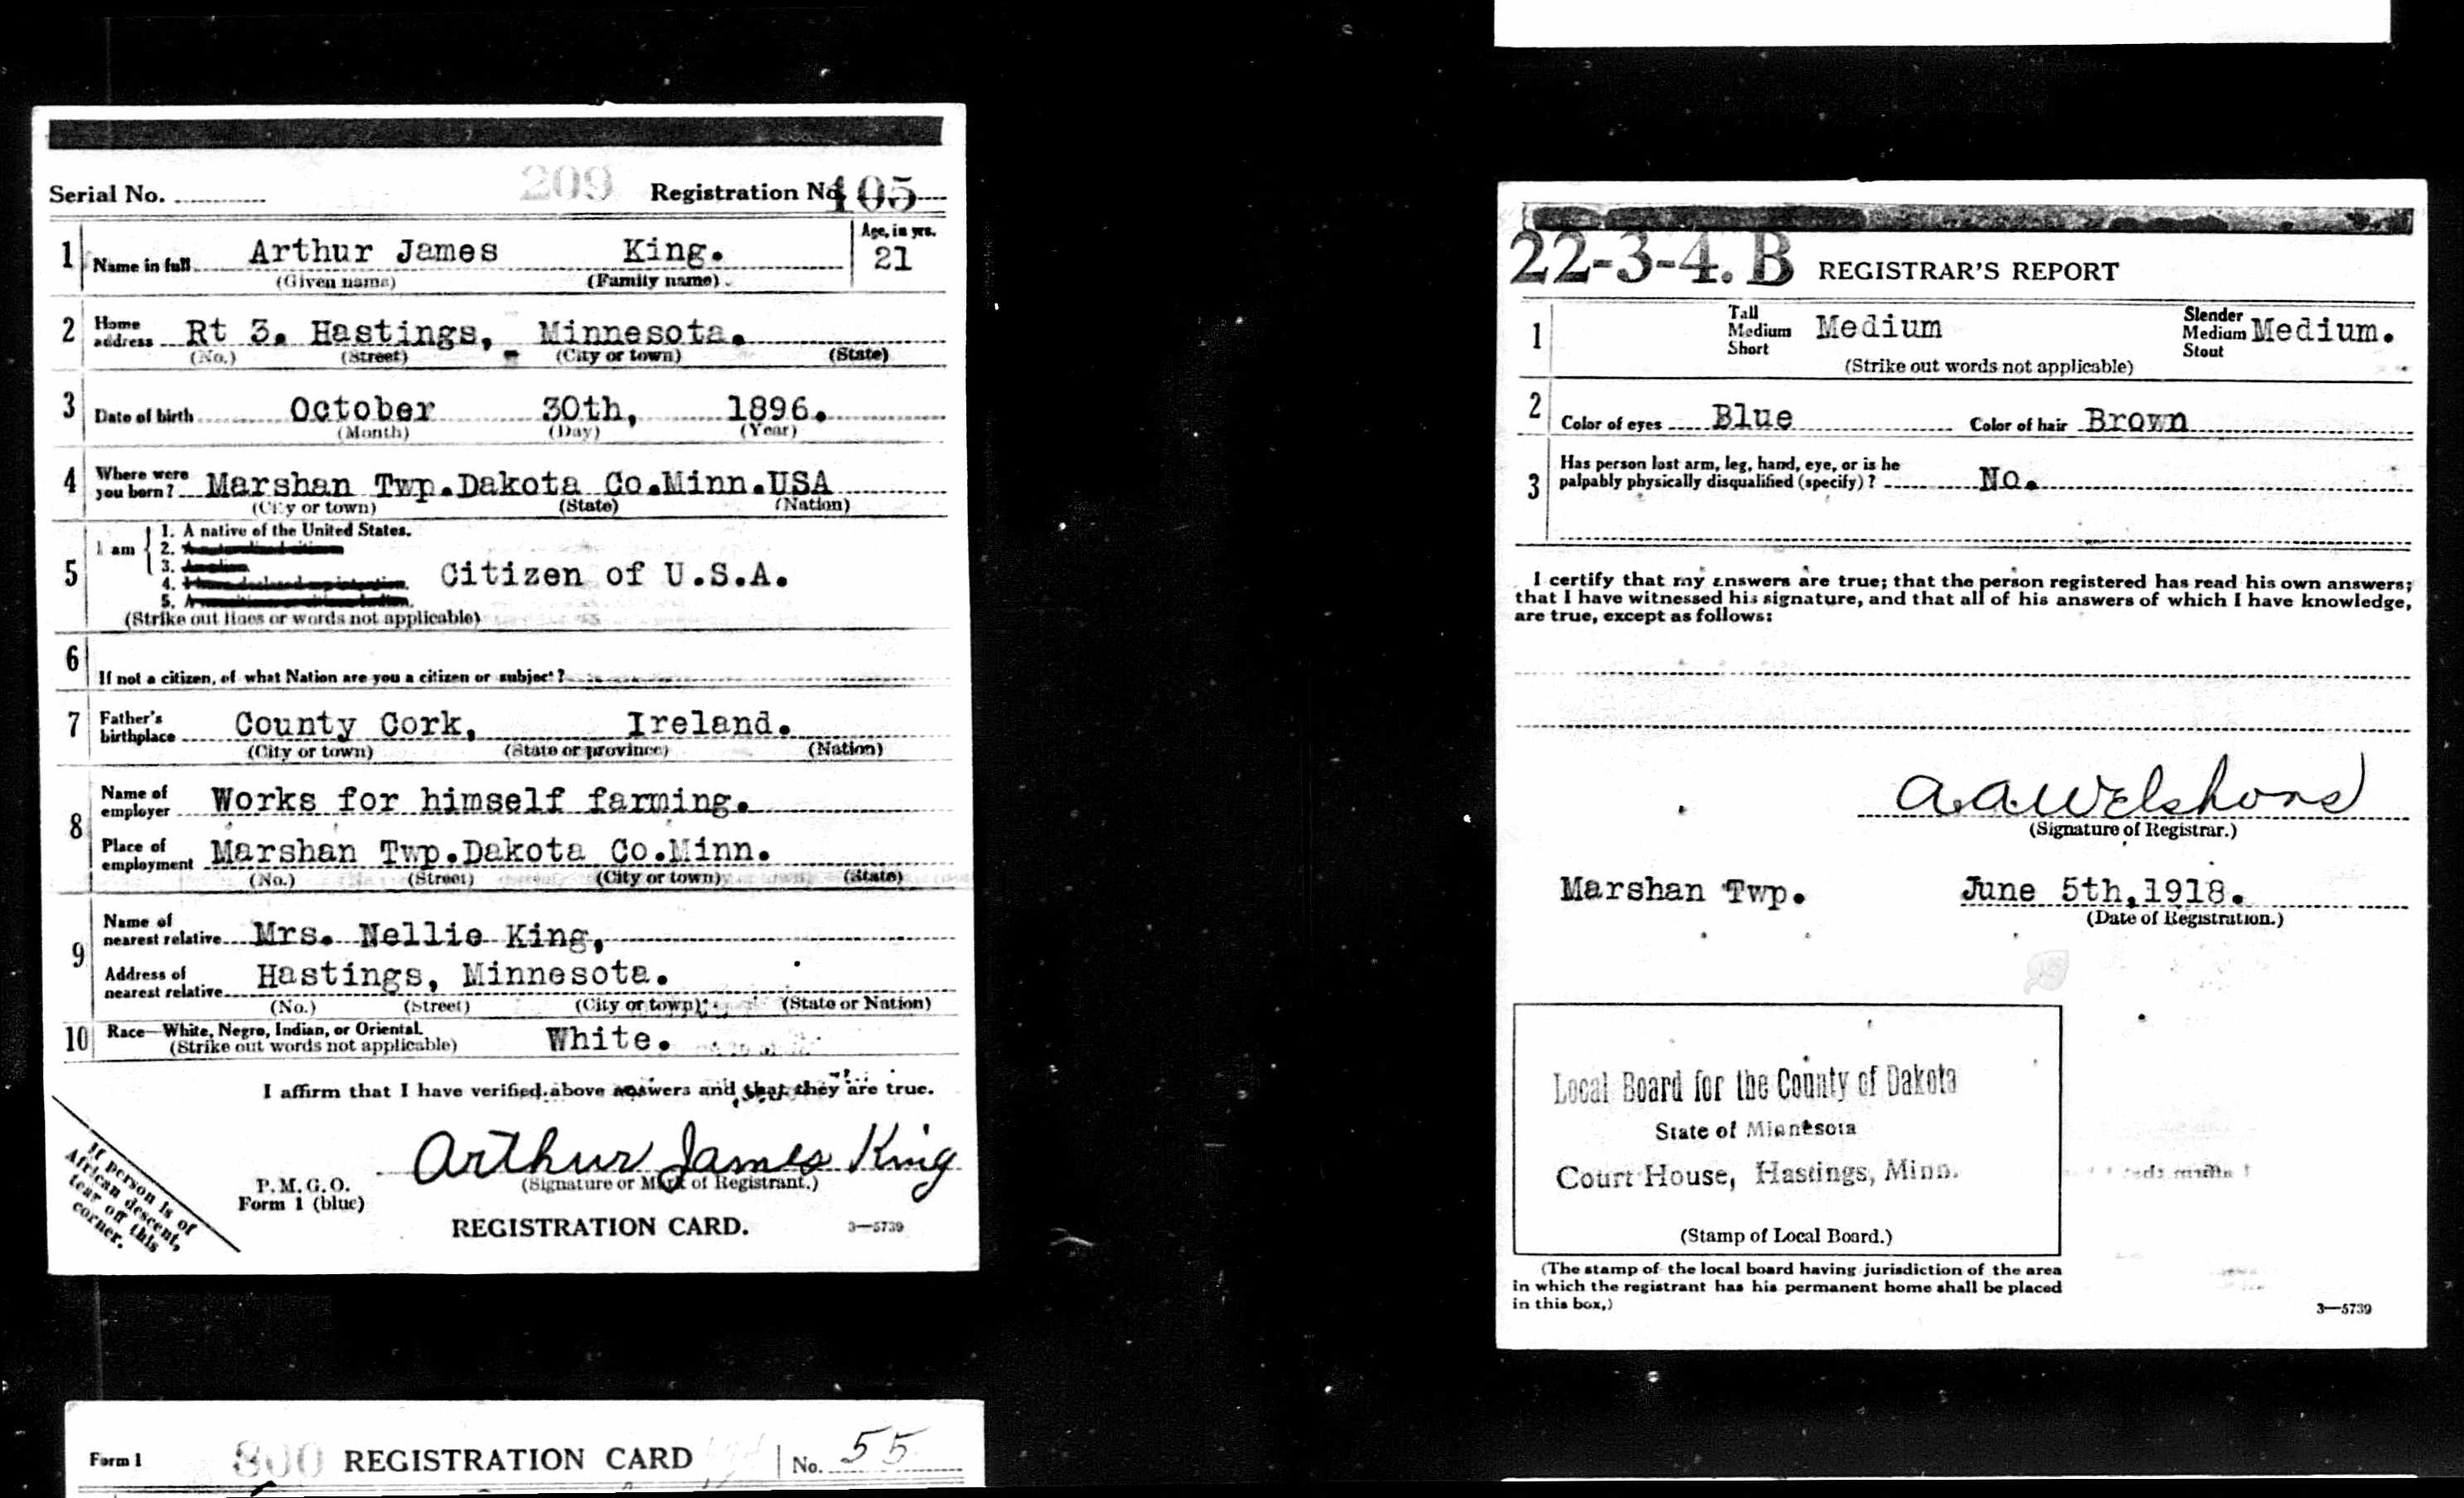 Serial No. 209 Registration No. 105
1 Name in full Arthur James King. Age, in yrs. 21
(Given name) (Family name)
2 Home address Rt 3. Hastings, Minnesota.
(No.) (Street) (City or town) (State)
3 Date of birth October 30th, 1896.
(Month) (Day) (Year)
4 Where were you born? Marshan Twp.Dakota Co.Minn.USA
(City or town) (State) (Nation)
5 I am 1. A native of the United States.
2.
3.
4.
5.
Citizen of U.S.A.
(Strike out lines or words not applicable)
6 If not a citizen, of what Nation are you a citizen or subject?
7 Father's birthplace County Cork, Ireland.
(City or town) (State or province) (Nation)
8 Name of employer Works for himself farming.
Place of employment Marshan Twp.Dakota Co.Minn.
(No.) (Street) (City or town) (State)
9 Name of nearest relative Mrs. Nellie King,
Address of nearest relative Hastings, Minnesota.
(No.) (Street) (City or town) (State or Nation)
10 Race—White, Negro, Indian, or Oriental.
(Strike out words not applicable) White.
I affirm that I have verified above answers and that they are true.
Arthur James King
(Signature or Mark of Registrant.)
P.M.G.O.
Form 1 (blue)
REGISTRATION CARD. 3—5739
If person is of
African descent,
tear off this
corner.
Form 1 800 REGISTRATION CARD No. 55
22-3-4. B REGISTRAR'S REPORT
1 Tall Medium Short Medium Slender Medium Stout Medium.
(Strike out words not applicable)
2 Color of eyes Blue Color of hair Brown
3 Has person lost arm, leg, hand, eye, or is he
palpably physically disqualified (specify)? No.
I certify that my answers are true; that the person registered has read his own answers;
that I have witnessed his signature, and that all of his answers of which I have knowledge,
are true, except as follows:
A.A. Welshons
(Signature of Registrar.)
Marshan Twp. June 5th,1918.
(Date of Registration.)
Local Board for the County of Dakota
State of Minnesota
Court House, Hastings, Minn.
(Stamp of Local Board.)
(The stamp of the local board having jurisdiction of the area
in which the registrant has his permanent home shall be placed
in this box.)
3—5739